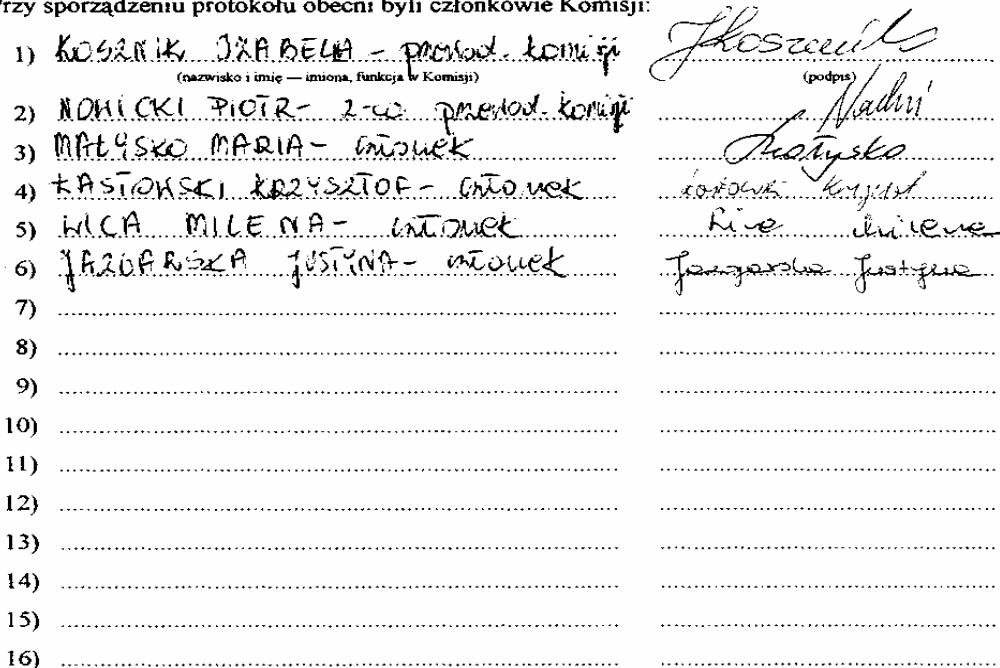 Przy sporządzeniu protokołu obecni byli członkowie Komisji:
1) KOSZNIK IZABELA – przewod. komisji JKosznik
(nazwisko i imię — imiona, funkcja w Komisji) (podpis)
2) NOWICKI PIOTR – z-ca przewod. komisji
3) MAŁYSKO MARIA – członek Małysko
4) ŁASTOWSKI KRZYSZTOF – członek
5) LICA MILENA – członek Lica Milena
6) JAZDARSKA JUSTYNA – członek Justyna
7)
8)
9)
10)
11)
12)
13)
14)
15)
16)